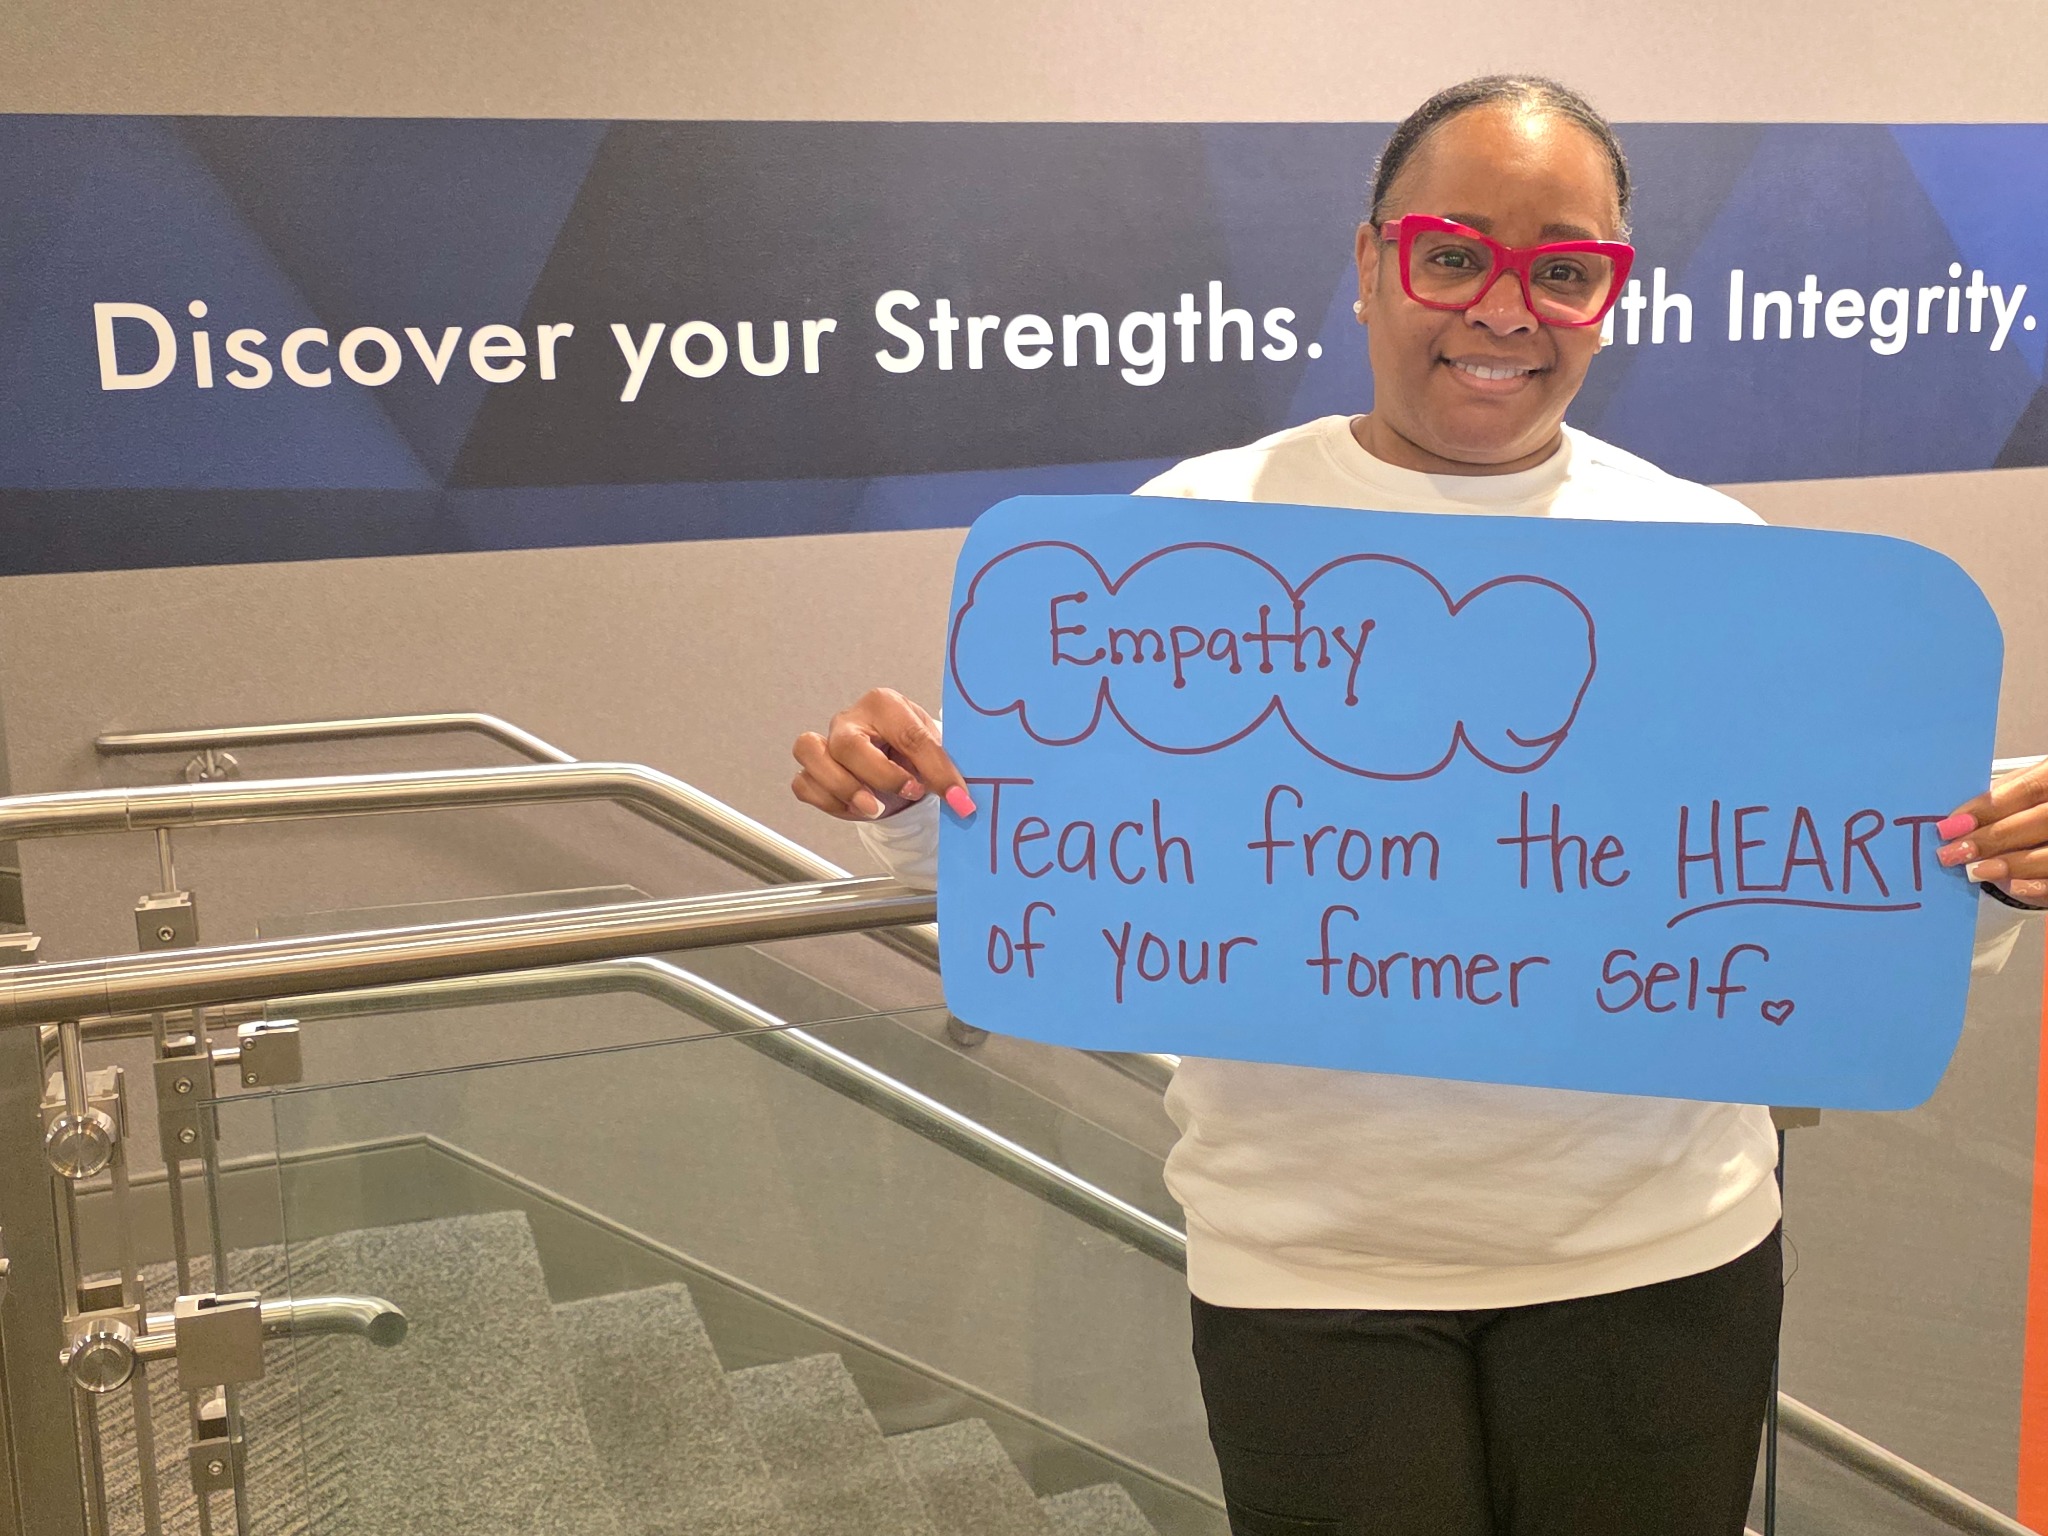 Discover your Strengths. Integrity.
Empathy
Teach from the HEART
of your former self.